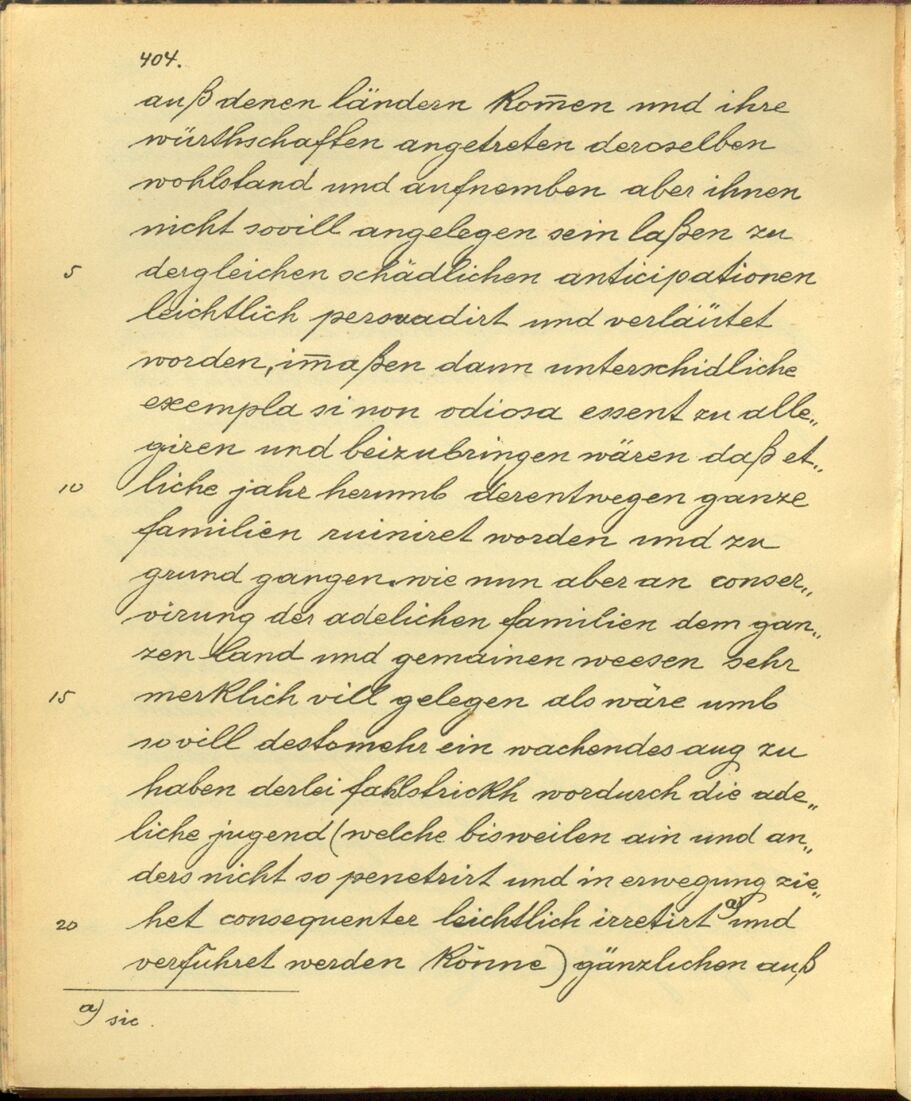 404.
auß denen ländern kom̄en und ihre
würthschaften angetreten deroselben
wohlstand und aufnemben aber ihnen
nicht sovill angelegen sein laßen zu
5 dergleichen schädlichen anticipationen
leichtlich persuadirt und verläütet
worden, im̄aßen dann unterschidliche
exempla si non odiosa essent zu alle„
giren und beizubringen wären daß et„
10 liche jahr herumb derentwegen ganze
familien ruiniret worden und zu
grund gangen. wie nun aber an conser„
virung der adelichen familien dem gan„
zen land und gemainen weesen sehr
15 merklich vill gelegen als wäre umb
sovill destomehr ein wachendes aug zu
haben derlei fahlstrickh wordurch die ade„
liche jugend (welche bisweilen ain und an„
ders nicht so penetrirt und in erwegung zie„
20 het consequenter leichtlich irretirt a) und
verführet werden könne) gänzlichen auß
a) sic.